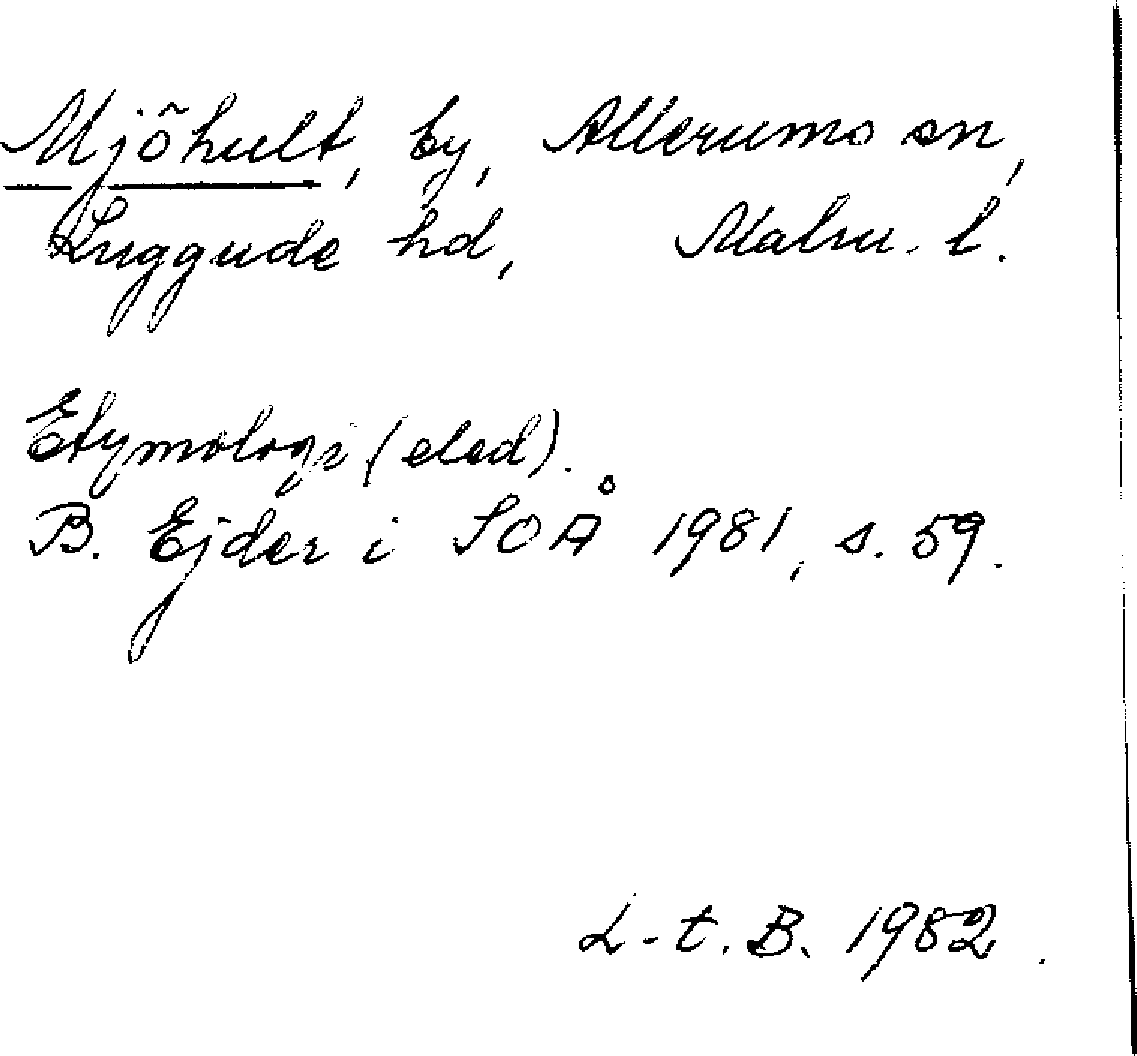 Mjöhult, by, Allerums sn,
Luggude hd, Malm. l.
Etymologi (eled).
B. Ejder i SOÅ 1981, s. 59.
L-t. B. 1982.